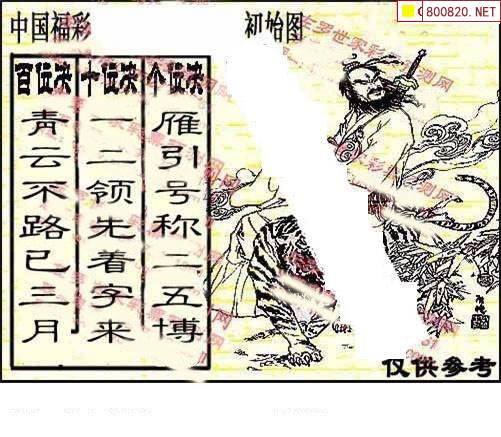 800820.NET
中国福彩
初始图
百位决
十位决
个位决
青云不路已三月
一二领先着字来
雁引号称二五博
仅供参考